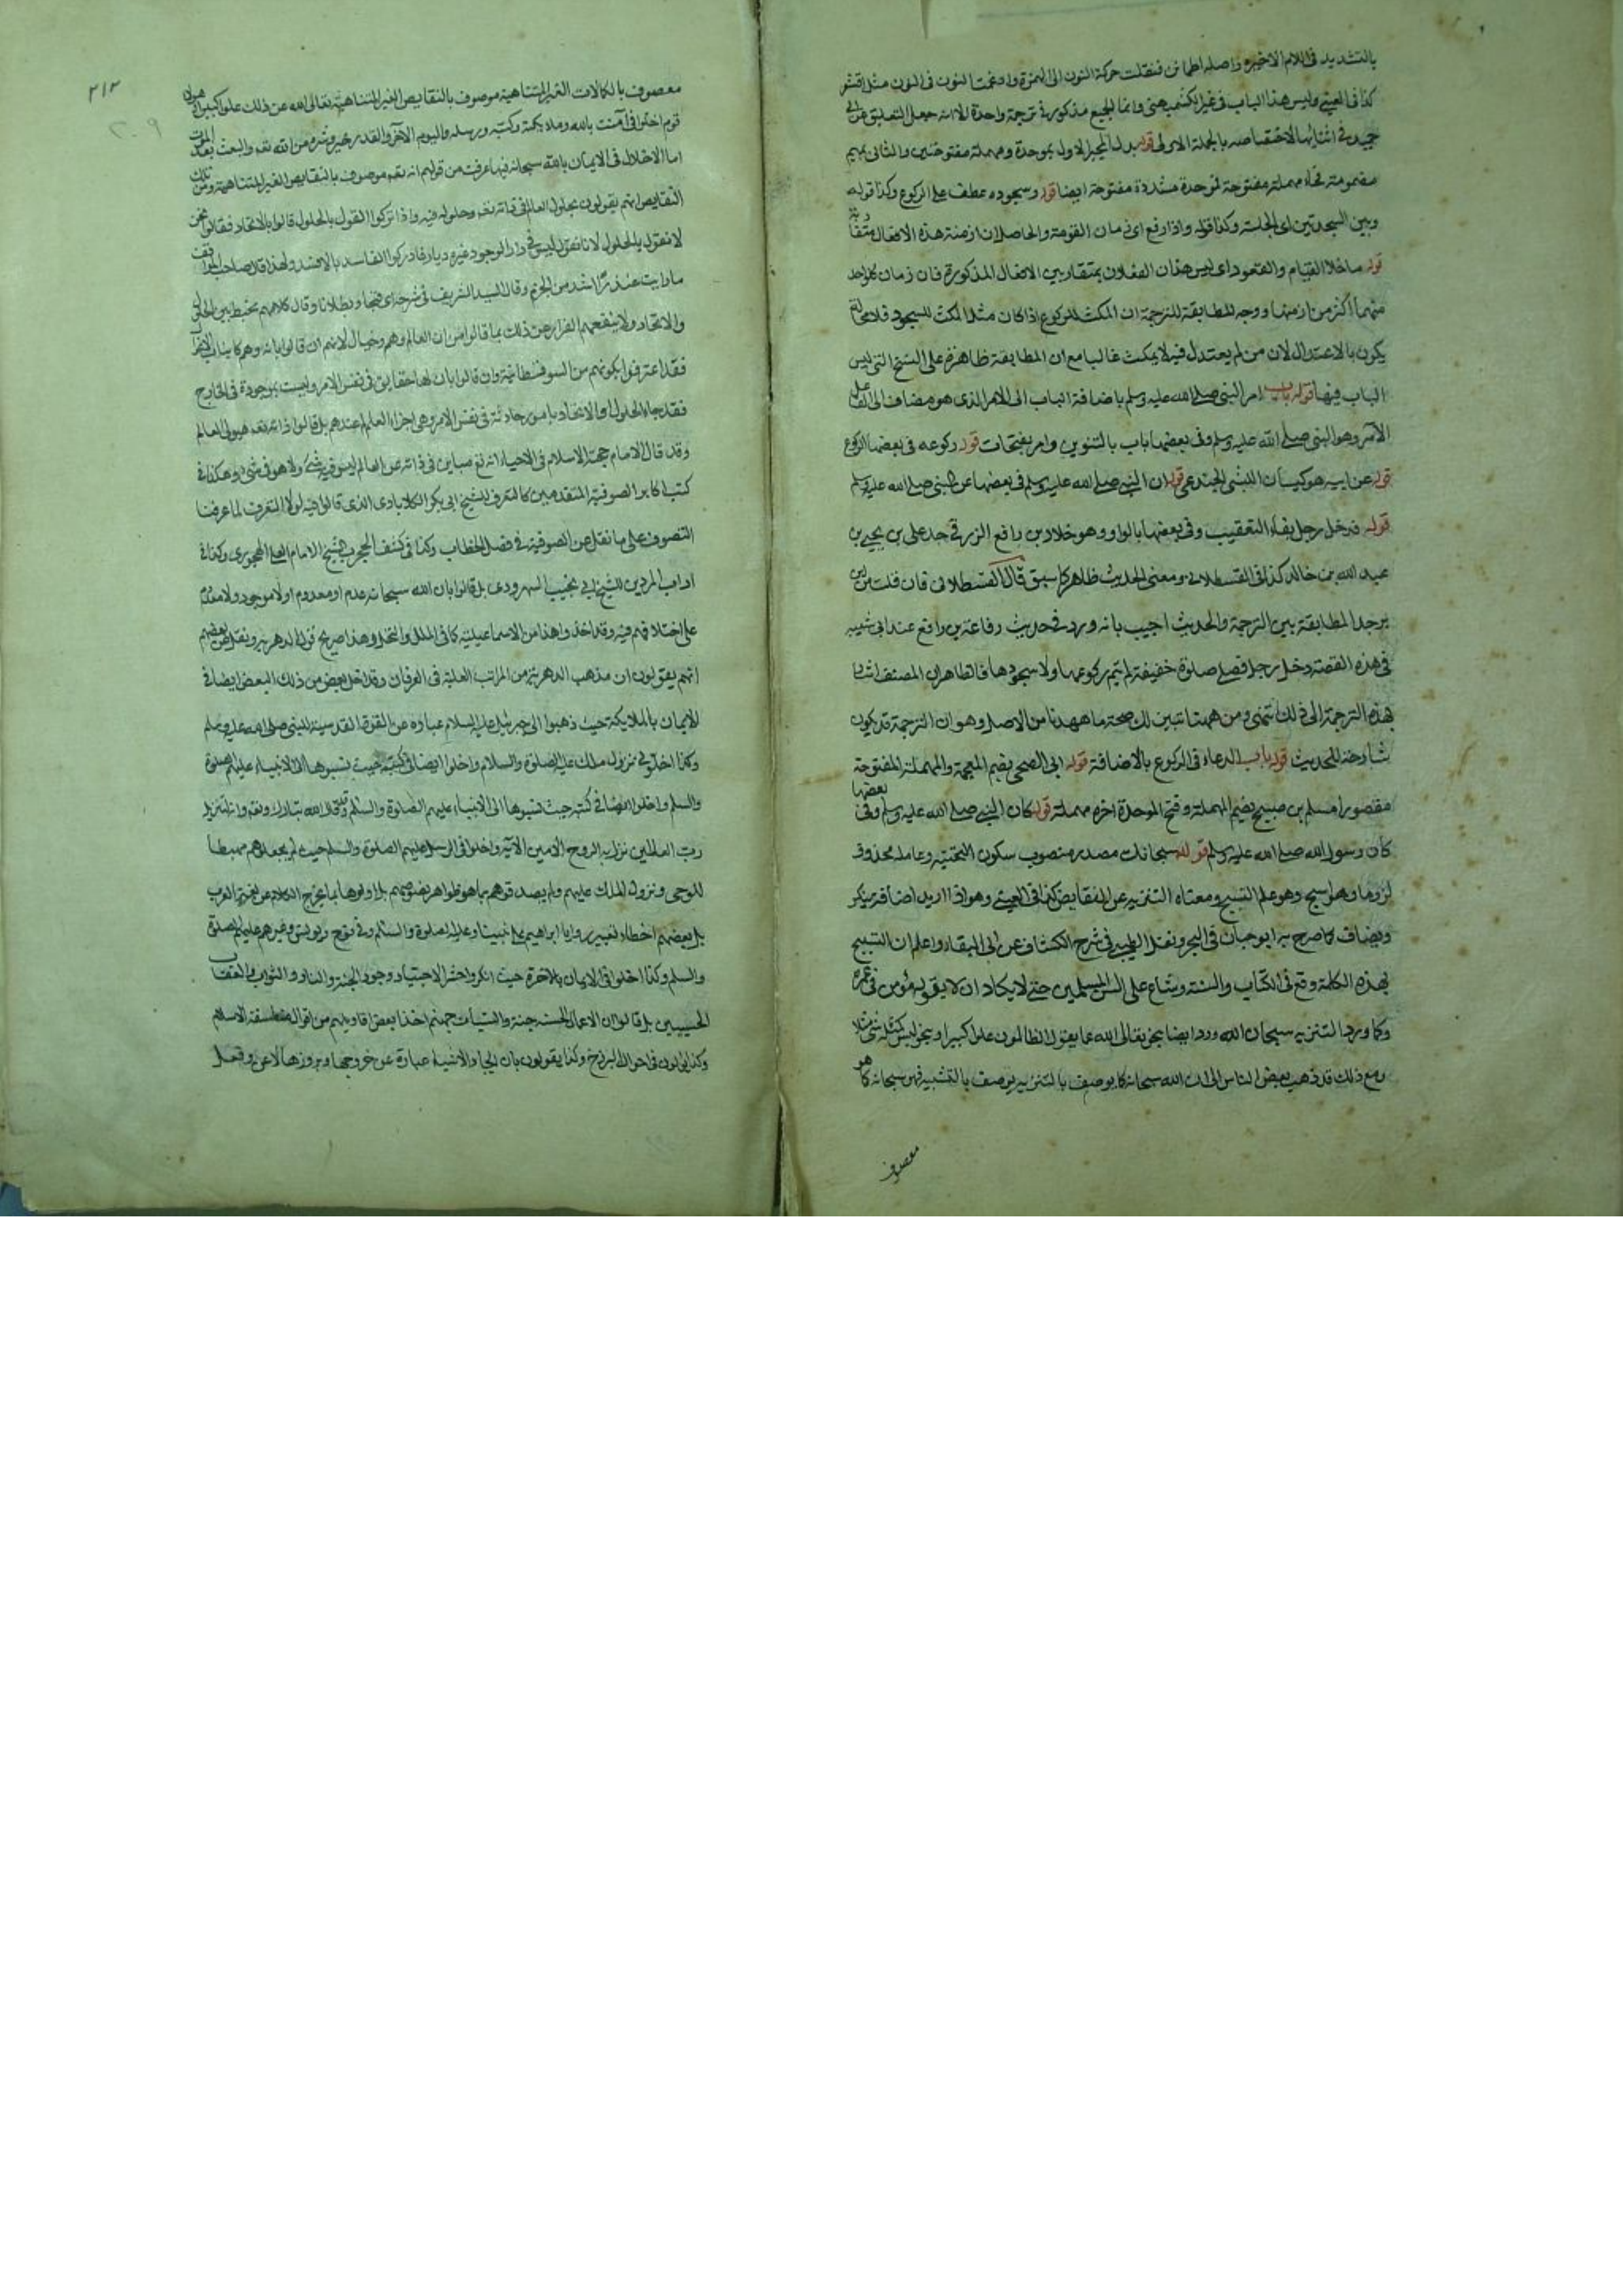 بالتشديد في اللام الاخيرة واصله اطمانن فنقلت حركة النون الى الهمزة وادغمت النون في النون مثل اقشعر
كذا في العيني وليس هذا الباب في غير الكشميهني وانما الجميع مذكور في ترجمة واحدة الا انه جعل التعليق عن ابي
حميد في اثنائها لاختصاصه بالجملة الاولى قوله بدل المحبر الاول بموحدة ومهملة مفتوحتين والثاني بميم
مضمومة فحاء مهملة مفتوحة فموحدة مشددة مفتوحة ايضا قوله وسجوده عطف على الركوع وكذا قوله
وبين السجدتين اى الجلسة وكذا قوله واذا رفع اى زمان القومة والحاصل ان ازمنة هذه الافعال متقاربة
قوله ما خلا القيام والقعود اى ليس هذان الفعلان بمتقاربين الافعال المذكورة فان زمان كل واحد
منهما اكثر من ازمنتها ووجه المطابقة للترجمة ان المكث للركوع اذا كان مثل المكث للسجود فلا
يكون بالاعتدال لان من لم يعتدل فيه لا يمكث غالبا مع ان المطابقة ظاهرة على النسخ التي ليس
الباب فيها قوله باب امر النبي صلى الله عليه وسلم باضافة الباب الى الامر الذي هو مضاف الى الفاعل
الآمر وهو النبي صلى الله عليه وسلم وفي بعضها باب بالتنوين وامر بفتحات قوله ركوعه في بعضها الركوع
قوله عن ابيه هو كيسان الليثي الجندعي قوله ان النبي صلى الله عليه وسلم في بعضها عن النبي صلى الله عليه وسلم
قوله فدخل رجل بفاء التعقيب وفي بعضها بالواو وهو خلاد بن رافع الزرقي جد علي بن يحيى بن
عبد الله بن خالد كذا في القسطلاني ومعنى الحديث ظاهر كما سبق قال القسطلاني فان قلت من اين
يوجد المطابقة بين الترجمة والحديث اجيب بانه ورد في حديث رفاعة بن رافع عند ابي شيبة
في هذه القصة دخل رجل فصلى صلوة خفيفة لم يتم ركوعها ولا سجودها فالظاهر ان المصنف اشار
بهذه الترجمة الى ذلك انتهى ومن ههنا تبين لك صحة ما مهدنا من الاصل وهو ان الترجمة قد يكون
شارحة للحديث قوله باب الدعاء في الركوع بالاضافة قوله ابي الضحى بضم المعجمة والمهملة المفتوحة
مقصورا مسلم بن صبيح بضم المهملة وفتح الموحدة اخره مهملة قوله كان النبي صلى الله عليه وسلم وفي بعضها
كان رسول الله صلى الله عليه وسلم قوله سبحانك مصدر منصوب سكون التحتية وعامله محذوف
لزوما وهو اسبح وهو علم التسبيح ومعناه التنزيه عن النقايص كذا في العيني وهو اذا اريد اضافة ينكر
ويضاف كما صرح به ابو حيان في البحر ونقل الطيبي في شرح الكشاف عن ابي البقاء واعلم ان التسبيح
بهذه الكلمة وقع في الكتاب والسنة وشاع على السن المسلمين حتى لا يكاد ان لا يقوله مؤمن في عمره
وكما ورد التنزيه سبحان الله ورد ايضا بنحو تعالى الله عما يقول الظالمون علوا كبيرا وبنحو ليس كمثله شئ مثلا
ومع ذلك قد ذهب بعض الناس الى ان الله سبحانه كما يوصف بالتنزيه يوصف بالتشبيه فهو سبحانه كما هو
معصوف
٢١٢
٢٠٩
معصوف بالكمالات الغير المتناهية موصوف بالنقايص الغير المتناهية تعالى الله عن ذلك علوا كبيرا وهؤلاء
قوم اخلوا في آمنت بالله وملايكته وكتبه ورسله واليوم الآخر والقدر خيره وشره من الله تعه والبعث بعد الموت
اما الاخلال في الايمان بالله سبحانه فبما عرفت من قولهم انه تعه موصوف بالنقايص الغير المتناهية ومن تلك
النقايص انهم يقولون بحلول العالم في ذاته تعه وحلوله فيه واذا تركوا القول بالحلول قالوا بالاتحاد فقالوا نحن
لا نقول بالحلول لانا نقول ليس في دار الوجود غيره ديار فادركوا الفاسد بالافسد ولهذا قال صاحب المواقف
ما رايت عند اشد من الجرم وقال السيد الشريف في شرحه اى قبحا وبطلانا وقال كلامهم مخبط بين الحلول
والاتحاد ولا ينفعهم الفرار عن ذلك بما قالوا من ان العالم وهم وخيال لانهم ان قالوا بانه وهو
فقد اعترفوا بكونهم من السوفسطائية وان قالوا بان لها حقايق في نفس الامر وليست بموجودة في الخارج
فقد جاء الحلول والاتحاد بامور حادثة في نفس الامر وهي اجزاء العالم عندهم بل قالوا ذاته تعه هيولى العالم
وقد قال الامام حجة الاسلام في الاحياء انه تع مباين في ذاته عن العالم ليس فيه شئ ولا هو في شئ وهكذا في
كتب اكابر الصوفية المتقدمين كالتعرف للشيخ ابي بكر الكلابادي الذي قالوا فيه لولا التعرف لما عرفنا
التصوف على ما نقل عن الصوفية في فصل الخطاب وكذا في كشف المحجوب للشيخ الامام ابي علي الهجويري وكذا في
اداب المريدين للشيخ ابي نجيب السهروردي بل قالوا بان الله سبحانه عدم او معدوم او لا موجود ولا معدوم
على اختلافهم فيه وقد اخذوا هذا من الاسماعيلية كما في الملل والنحل وهذا صريح قول الدهرية ونقل عن بعضهم
انهم يقولون ان مذهب الدهرية من المراتب العلية في العرفان وقد اخل بعض من ذلك البعض ايضا في
الايمان بالملايكة حيث ذهبوا الى جبرئيل عليه السلام عبارة عن القوة القدسية للنبي صلى الله عليه وسلم
وكذا اخلوا في نزول ملك عليه الصلوة والسلام واخلوا ايضا في كتبه حيث نسبوها الى الانبياء عليهم الصلوة
والسلم واخلوا ايضا في كتبه حيث نسبوها الى الانبياء عليهم الصلوة والسلم وقد قال الله تبارك وتعه وانه لتنزيل
رب العالمين نزل به الروح الامين الآية واخلوا في الرسل عليهم الصلوة والسلم حيث لم يجعلوهم مهبطا
للوحي ونزول الملك عليهم ولم يصدقوهم بما هو ظواهر نصوصهم بل اولوها بما يخرج الكلام عن لغة العرب
بل بعضهم اخطاء تعبير رويا ابراهيم على نبينا وعليه الصلوة والسلم وفي نوح ويونس وغيرهم عليهم الصلوة
والسلم وكذا اخلوا في الايمان بالاخرة حيث انكروا حشر الاجساد ووجود الجنة والنار والثواب والعقاب
الحسيين بل قالوا ان الاعمال الحسنه جنة والسيئات جهنم اخذا بعض اقاويلهم من اقوال متفلسفة الاسلام
وكذا يقولون في احوال البرزخ وكذا يقولون بان ايجاد الاشياء عبارة عن خروجها وبروزها لا عن وفعل